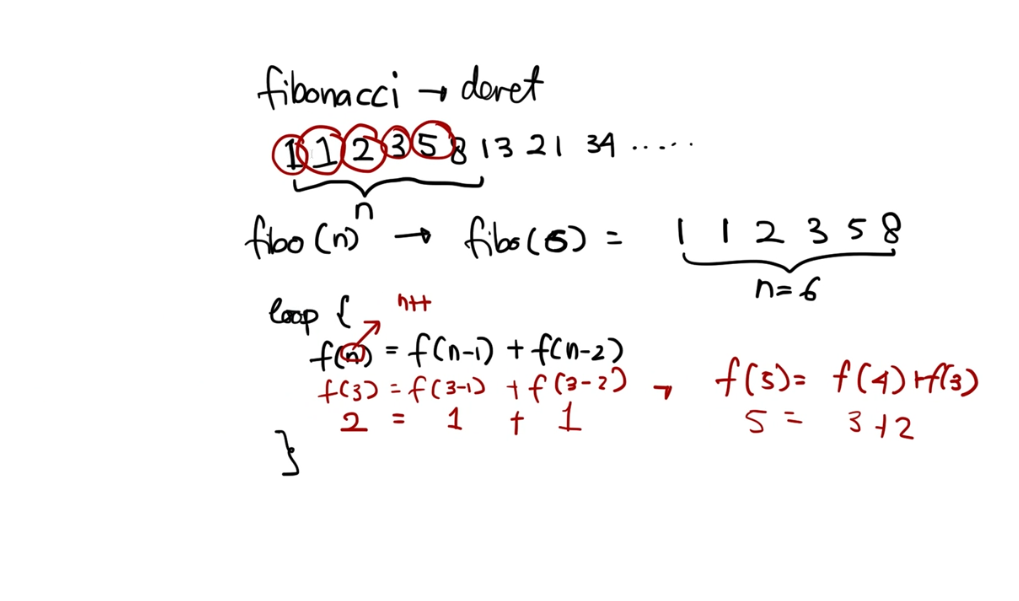 fibonacci → deret
1 1 2 3 5 8 13 21 34 .....
n
fibo (n) → fibo(6) = 1 1 2 3 5 8
n = 6
loop { n++
f(n) = f(n-1) + f(n-2)
f(3) = f(3-1) + f(3-2) → f(5) = f(4) + f(3)
2 = 1 + 1 5 = 3 + 2
}